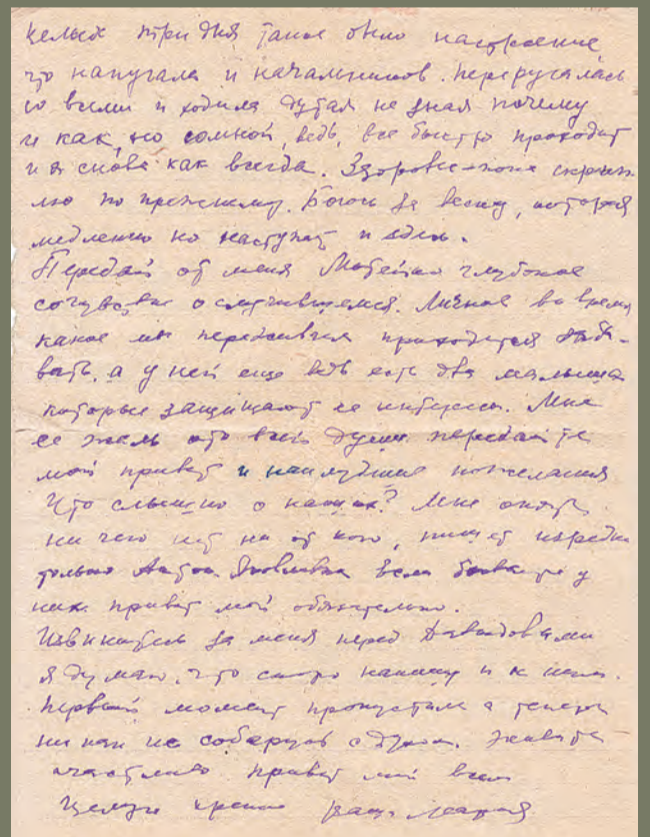 целых три дня такое было настроение
что напугала и начальников. Переругалась
со всеми и ходила дутая не зная почему
и как, но со мной, ведь, все быстро проходит
и я снова как всегда. Здоровье пока скрип-
лю по прежнему. Боюсь за весну, которая
медленно но наступает и здесь.
Передай от меня Матейко глубокое
сочувствие о случившемся. Личное во время
какое мы переживаем приходится забы-
вать, а у ней еще ведь есть два малыша
которые защищают ее интересы. Мне
ее жаль ото всей души передайте
мой привет и наилучшие пожелания
Что слышно о наших? Мне опять
ни чего нет ни от кого, пишет изредка
только Яковлевна всем бываете у
них привет мой обязательно.
Извинитесь за меня перед Давыдовыми
я думаю, что скоро напишу и к ним.
Первый момент пропустила а теперь
ни как не соберусь с духом. Живите
счастливо привет мой всем
Целую крепко Ваша Мария